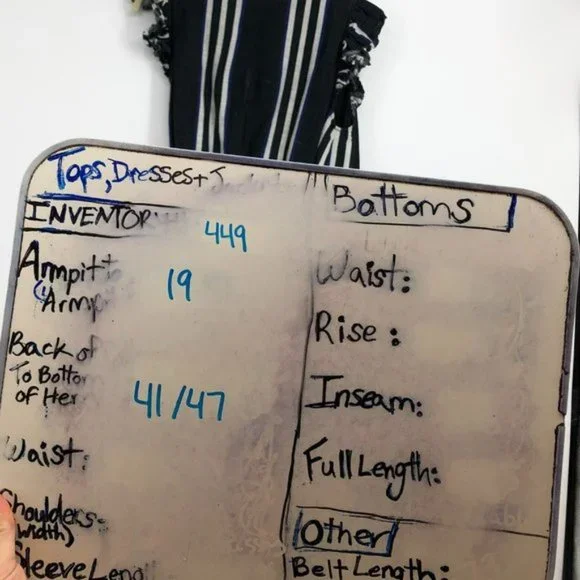 Tops, Dresses + J
INVENTOR
449
Armpit t
19
(Armp
Back of
To Botto
of Hem
41/47
Waist:
Shoulders-
(width)
Sleeve Leng
Bottoms
Waist:
Rise:
Inseam:
Full Length:
Other
Belt Length: